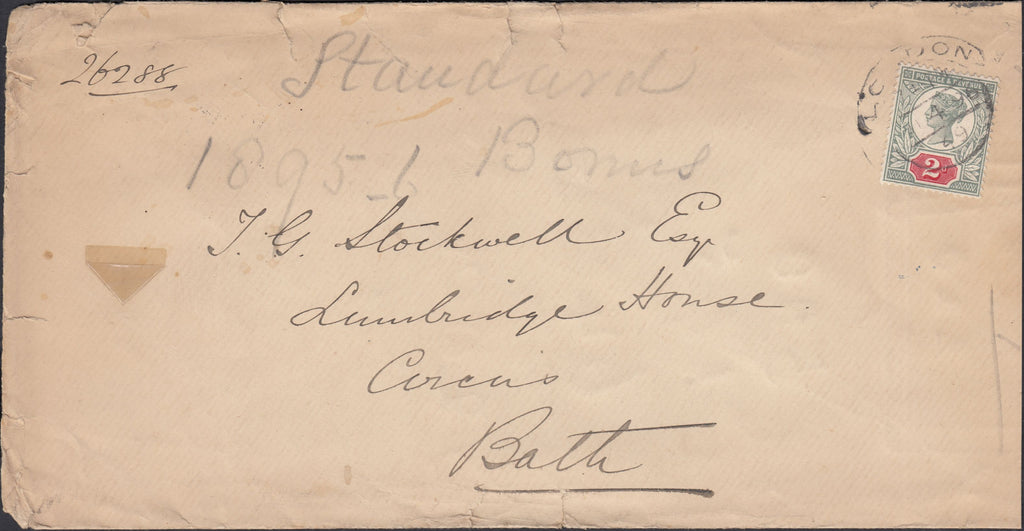 26288
Standard
1895-6 Bonus
LONDON
POSTAGE & REVENUE
2D
T. G. Stockwell Esqr
Lumbridge House
Circus
Bath